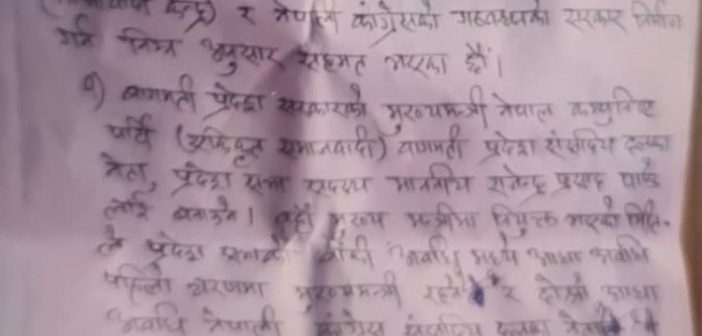 केन्द्र) र नेपाली कांग्रेसको गठबन्धनको सरकार निर्माण
गर्न निम्न अनुसार सहमत भएका छौं।
१) बागमती प्रदेश सरकारको मुख्यमन्त्री नेपाल कम्युनिष्ट
पार्टी (एकिकृत समाजवादी) बागमती प्रदेश संसदिय दलका
नेता, प्रदेश सभा सदस्य माननीय राजेन्द्र प्रसाद पाण्डे
लाई बनाउने। वहाँ मुख्य मन्त्रीमा नियुक्त भएको मिति-
ले प्रदेश सभाको बाँकी अवधि मध्ये आधा अवधि
पहिलो चरणमा मुख्यमन्त्री रहने र दोस्रो आधा
अवधि नेपाली कांग्रेस संसदिय दलका नेता